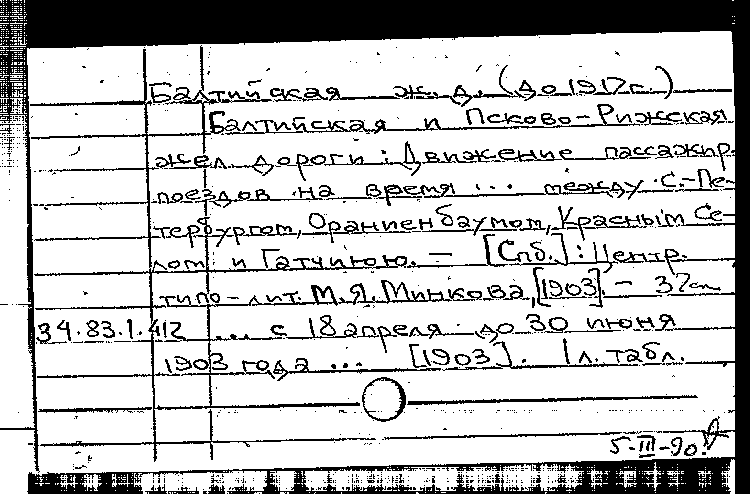 Балтийская ж.д. (до 1917г.)
Балтийская и Псково-Рижская
жел. дороги: Движение пассажир.
поездов на время ... между С.-Пе-
тербургом, Ораниенбаумом, Красным Се-
лом и Гатчиною. — [Спб.]: Центр.
типо-лит. М.Я. Минкова, [1903]. — 37см
34.83.1.412 ... с 18 апреля до 30 июня
1903 года ... [1903]. 1 л. табл.
5-III-90г.